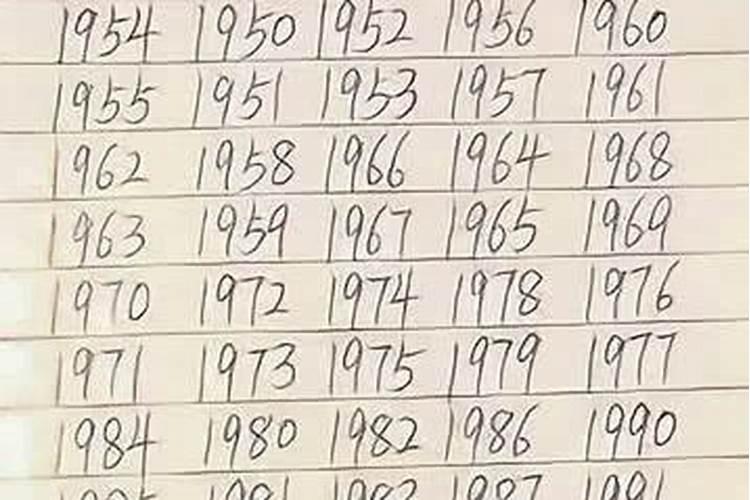 1954 1950 1952 1956 1960
1955 1951 1953 1957 1961
1962 1958 1966 1964 1968
1963 1959 1967 1965 1969
1970 1972 1974 1978 1976
1971 1973 1975 1979 1977
1984 1980 1982 1986 1990